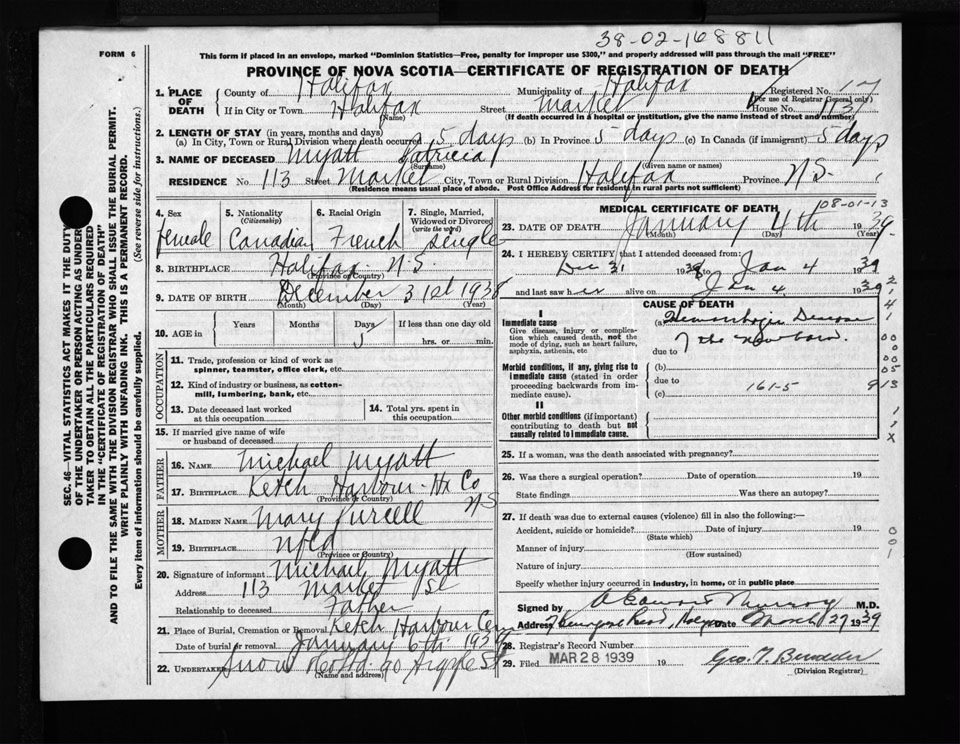 38-02-168811
FORM 6
This form if placed in an envelope, marked "Dominion Statistics—Free, penalty for improper use $300," and properly addressed will pass through the mail "FREE"
PROVINCE OF NOVA SCOTIA—CERTIFICATE OF REGISTRATION OF DEATH
1. PLACE OF DEATH County of Halifax Municipality of Halifax Registered No. 17
(For use of Registrar General only)
If in City or Town Halifax Street Market House No. 113
(Name) (If death occurred in a hospital or institution, give the name instead of street and number)
2. LENGTH OF STAY (in years, months and days)
(a) In City, Town or Rural Division where death occurred 5 days (b) In Province 5 days (c) In Canada (if immigrant) 5 days
3. NAME OF DECEASED Myatt Patricia
(Surname) (Given name or names)
RESIDENCE No. 113 Street Market City, Town or Rural Division Halifax Province N.S.
(Residence means usual place of abode. Post Office Address for residents in rural parts not sufficient)
4. Sex female
5. Nationality (Citizenship) Canadian
6. Racial Origin French
7. Single, Married, Widowed or Divorced (write the word) Single
8. BIRTHPLACE Halifax N.S.
(Province or Country)
9. DATE OF BIRTH December 31st 1938
(Month) (Day) (Year)
10. AGE in Years Months Days 5 If less than one day old hrs. or min.
OCCUPATION
11. Trade, profession or kind of work as spinner, teamster, office clerk, etc.
12. Kind of industry or business, as cotton-mill, lumbering, bank, etc.
13. Date deceased last worked at this occupation
14. Total yrs. spent in this occupation
15. If married give name of wife or husband of deceased
FATHER
16. NAME Michael Myatt
17. BIRTHPLACE Ketch Harbour Hx Co NS
(Province or Country)
MOTHER
18. MAIDEN NAME Mary Purcell
19. BIRTHPLACE Nfld
(Province or Country)
20. Signature of informant Michael Myatt
Address 113 Market St
Relationship to deceased Father
21. Place of Burial, Cremation or Removal Ketch Harbour Cem
Date of burial or removal January 6th 1939
22. UNDERTAKER Snow Argyle St
(Name and address)
MEDICAL CERTIFICATE OF DEATH
08-01-13
23. DATE OF DEATH January 4th 1939
(Month) (Day) (Year)
24. I HEREBY CERTIFY that I attended deceased from:
Dec 31 1938 to Jan 4 1939
and last saw her alive on Jan 4 1939
CAUSE OF DEATH
I
Immediate cause
Give disease, injury or complication which caused death, not the mode of dying, such as heart failure, asphyxia, asthenia, etc
(a) Hemorrhagic Disease of the newborn.
due to
Morbid conditions, if any, giving rise to immediate cause (stated in order proceeding backwards from immediate cause).
(b)
due to
(c) 161-5
II
Other morbid conditions (if important) contributing to death but not causally related to immediate cause.
25. If a woman, was the death associated with pregnancy?
26. Was there a surgical operation? Date of operation 19
State findings Was there an autopsy?
27. If death was due to external causes (violence) fill in also the following:—
Accident, suicide or homicide? Date of injury 19
(State which)
Manner of injury
(How sustained)
Nature of injury
Specify whether injury occurred in industry, in home, or in public place
Signed by Murray M.D.
Address Date March 27 1939
28. Registrar's Record Number
29. Filed MAR 28 1939 19
(Division Registrar)
SEC. 46—VITAL STATISTICS ACT MAKES IT THE DUTY
OF THE UNDERTAKER OR PERSON ACTING AS UNDER-
TAKER TO OBTAIN ALL THE PARTICULARS REQUIRED
IN THE "CERTIFICATE OF REGISTRATION OF DEATH"
AND TO FILE THE SAME WITH THE DIVISION REGISTRAR WHO SHALL ISSUE THE BURIAL PERMIT.
WRITE PLAINLY WITH UNFADING INK. THIS IS A PERMANENT RECORD.
Every item of information should be carefully supplied. (See reverse side for instructions.)